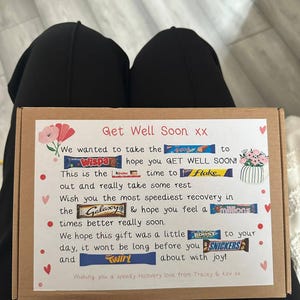 Get Well Soon xx
We wanted to take the to
Wispa hope you GET WELL SOON!
This is the time to Flake
out and really take some rest
Wish you the most speediest recovery in
the Galaxy & hope you feel a
times better really soon.
We hope this gift was a little BOOST to your
day, it wont be long before you SNICKERS
and Twirl about with joy!
Wishing you a speedy recovery love from Tracey & Kev xx